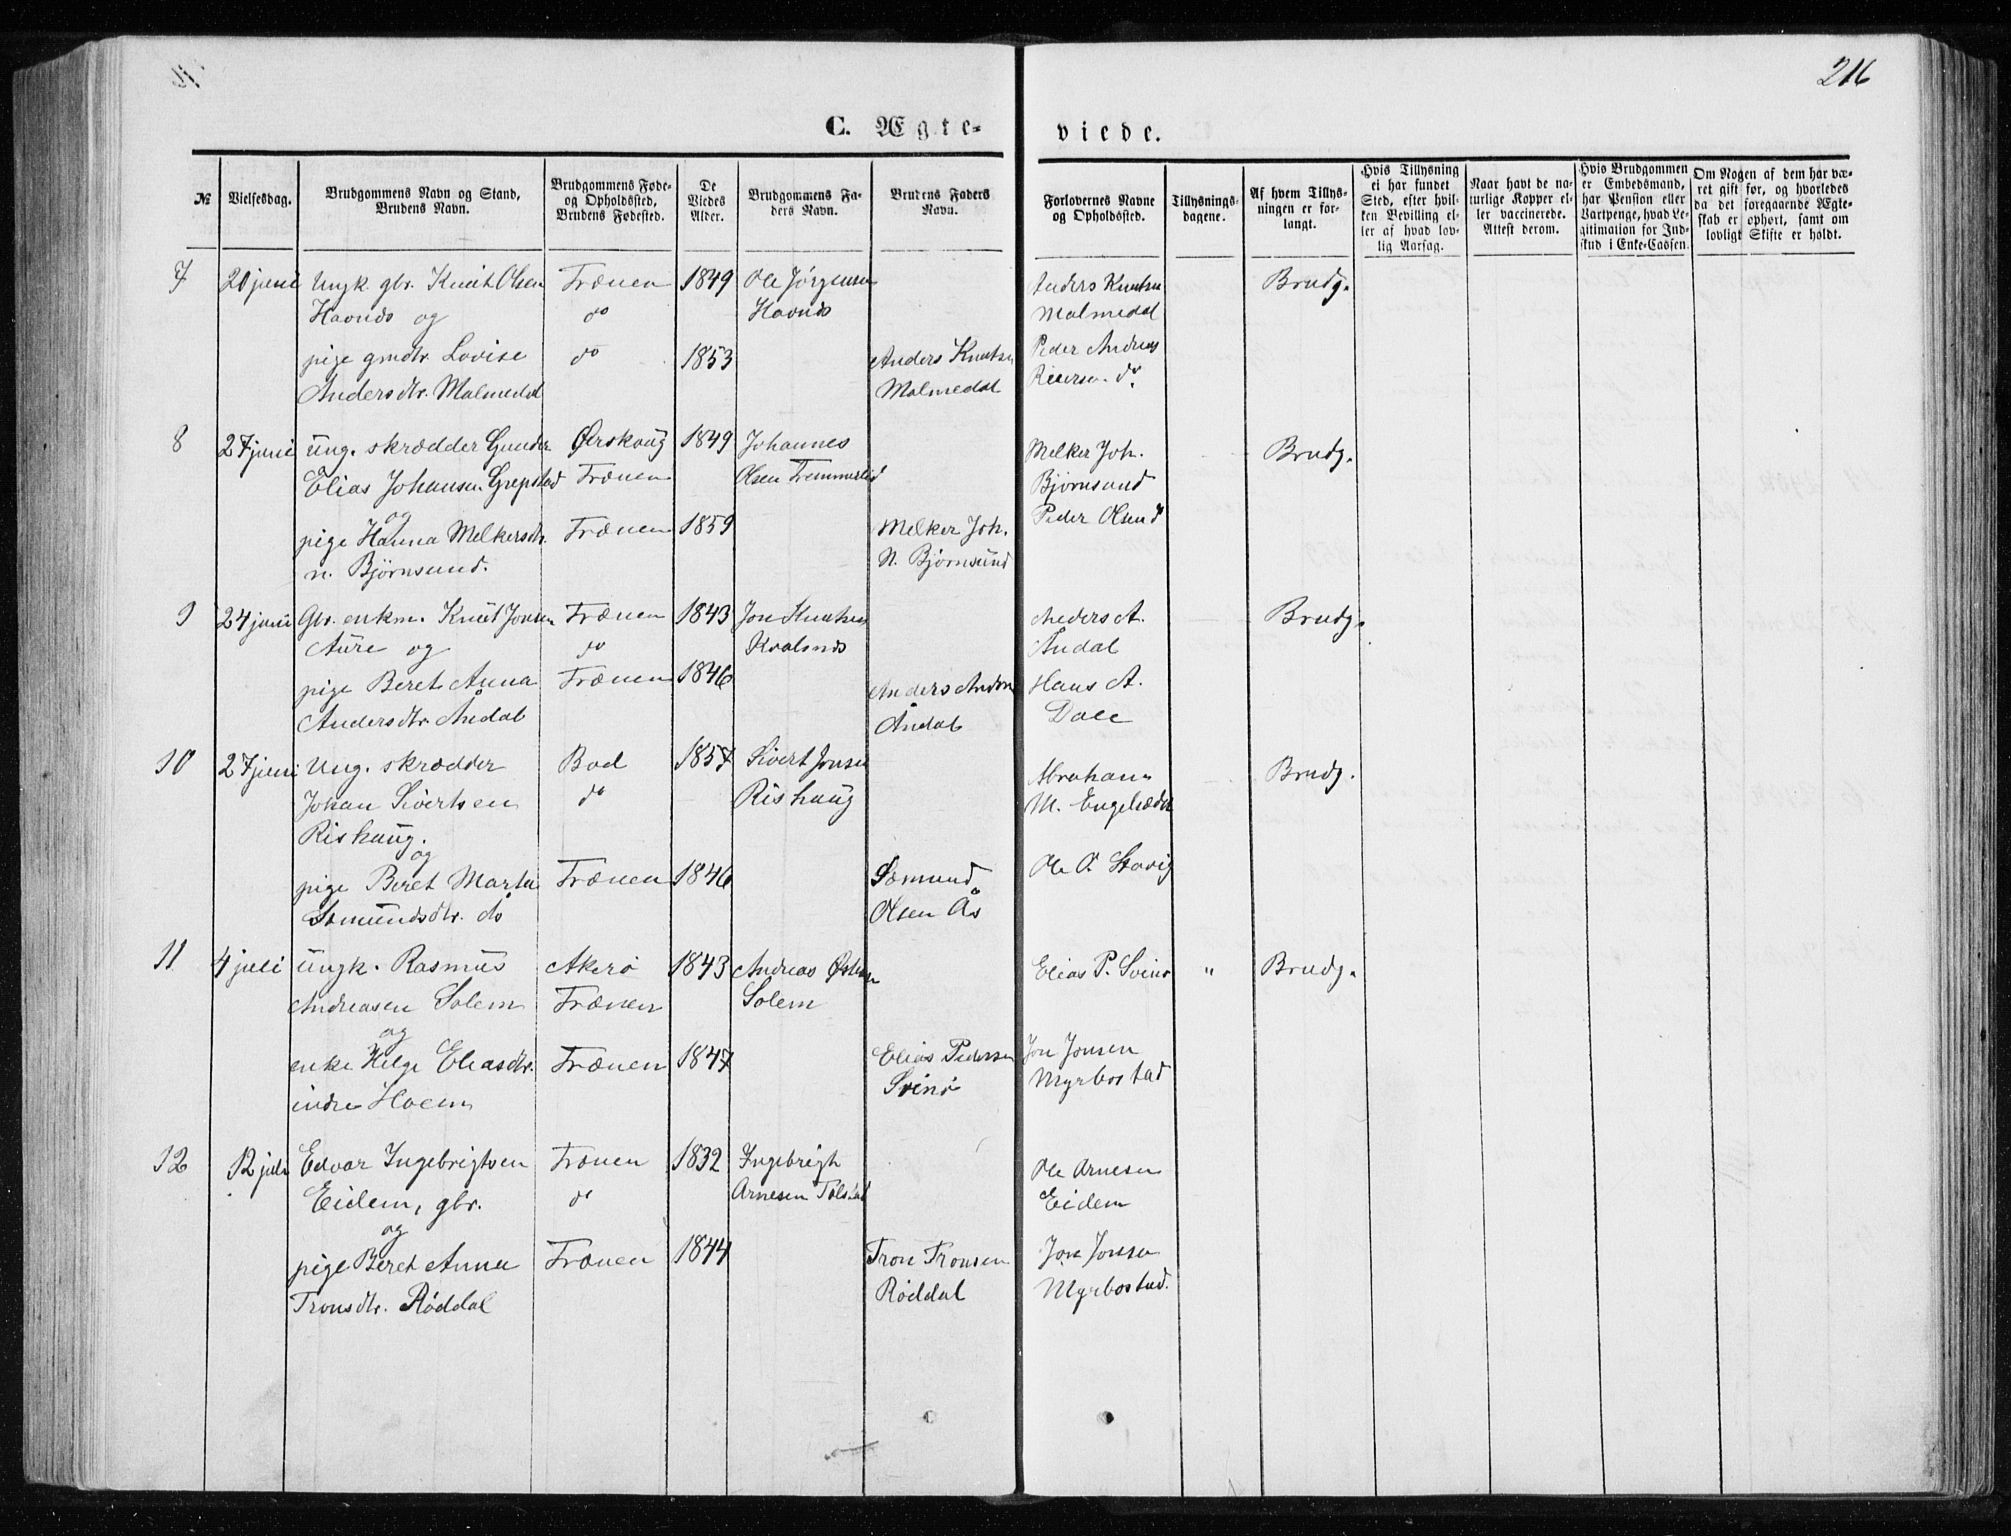 216
C. Ægte-
viede.
№
Vielsesdag.
Brudgommens Navn og Stand,
Brudens Navn.
Brudgommens Føde-
og Opholdssted,
Brudens Fødested.
De
Viedes
Alder.
Brudgommens Fa-
ders Navn.
Brudens Faders
Navn.
Forlovernes Navne
og Opholdssted.
Tillysnings-
dagene.
Af hvem Tillys-
ningen er for-
langt.
Hvis Tillysning
ei har fundet
Sted, efter hvil-
ken Bevilling el-
ler af hvad lov-
lig Aarsag.
Naar havt de na-
turlige Kopper el-
ler vaccinerede.
Attest derom.
Hvis Brudgommen
er Embedsmand,
har Pension eller
Vartpenge, hvad Le-
gitimation for Ind-
skud i Enke-Cassen.
Om Nogen af dem har væ-
ret gift før, og hvorledes
da det foregaaende Ægte-
skab er ophørt, samt om
lovligt Skifte er holdt.
7 20 juni Ungk gbr. Knut Olsen Frænen 1849 Ole Jörgensen Anders Knutsen Brudg.
Havnds og do Havnds Malmedal
pige gmdtr. Lovise do 1853 Anders Knutsen Peder Andreas
Andersdtr. Malmedal Malmedal do
8 27 juni Ung. skrædder Gunder Ørskoug 1849 Johannes Melker Joh. Brudg.
Elias Johansen Grepstad Frænen Olsen Fremmerlid Björnsund
og Peder Olsen do
pige Hanna Melkersdtr. Frænen 1859 Melker Joh.
n. Björnsund. N. Björnsund
9 24 juni Gbr. enkm. Knut Jonsen Frænen 1843 Jon Knutsen Anders A. Brudg.
Aure og do Kvalsnds Åndal
pige Beret Anna Frænen 1846 Anders Andersen Hans A.
Andersdtr. Åndal Åndal Dale
10 27 juni Ung. skrædder Bod 1857 Sivert Jonsen Abraham Brudg.
Johan Sivertsen do Rishaug M. Engelsæter
Rishaug.
og
pige Beret Marta Frænen 1846 Somund Ole O. Stavig
Somundsdtr. Ås Olsen Ås
11 4 juli Ungk. Rasmus Akerö 1843 Andreas Østen Elias P. Svinö " Brudg.
Andreasen Solem Frænen Solem
og
enke Helge Eliasdtr. Frænen 1847 Elias Pedersen Jon Jonsen
indre Hoem Svinö Myrbostad
12 12 juli Edvar Ingebrigtsen Frænen 1832 Ingebrigt Ole Arnesen
Eidem, gbr. do Arnesen Tolstad Eidem
og
pige Beret Anna Frænen 1844 Tron Tronsen Jon Jonsen
Tronsdtr. Röddal Röddal Myrbostad.